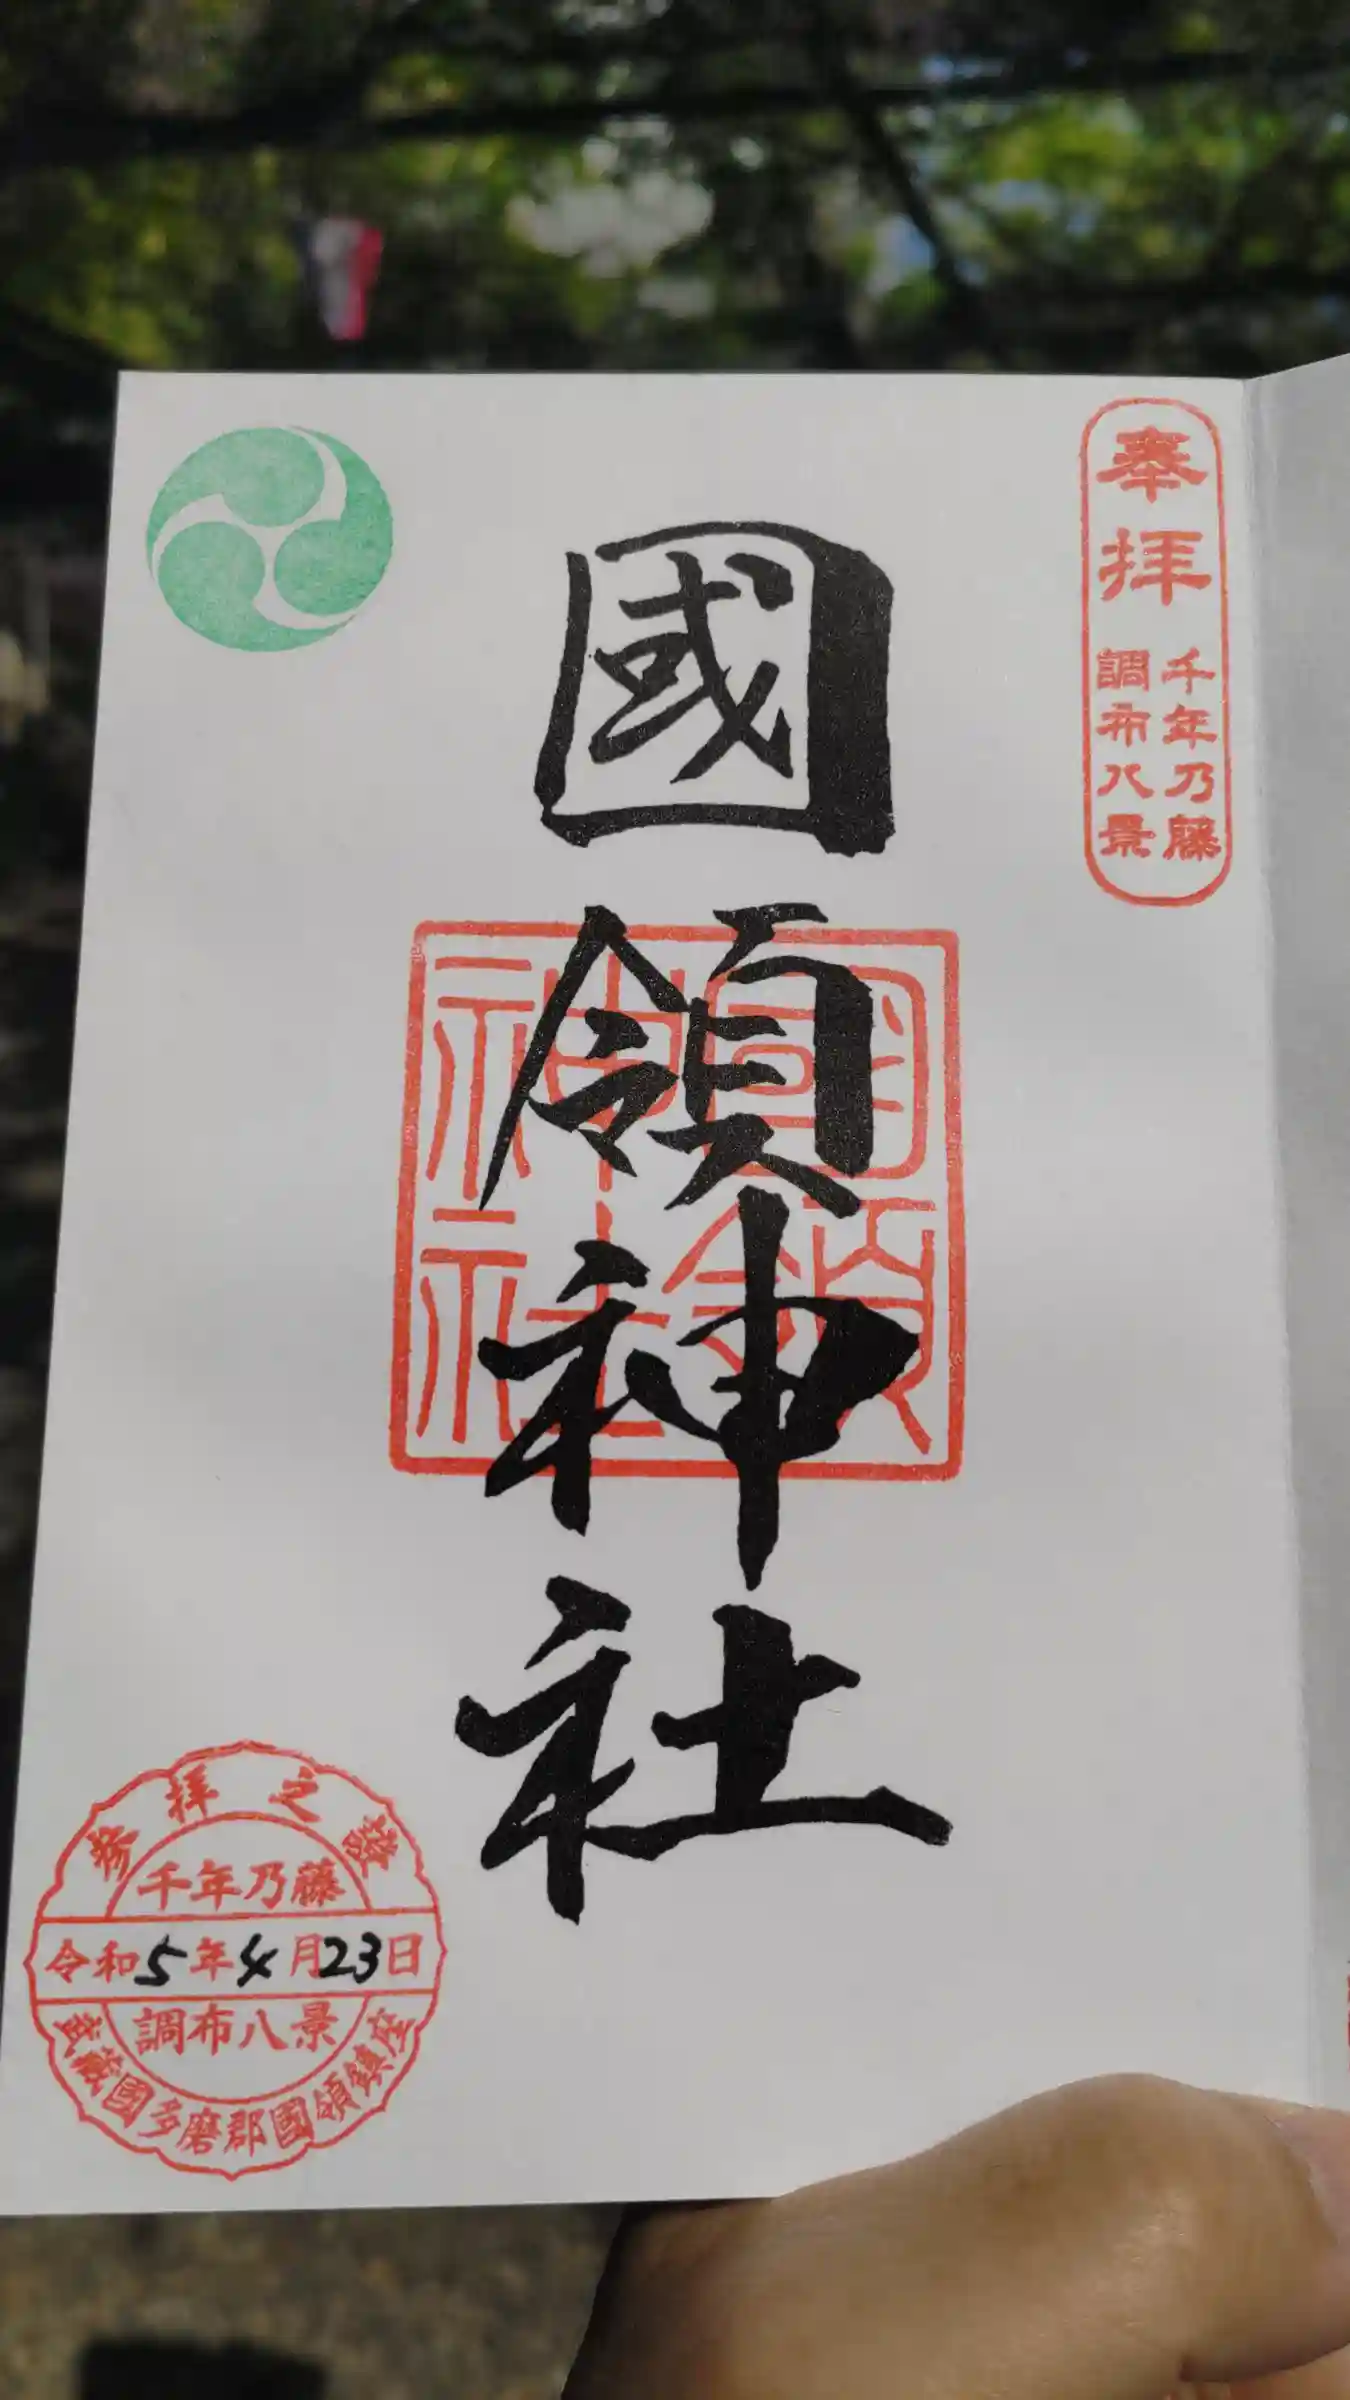 奉拝
千年乃藤
調布八景
國領神社
國領
神社
參拝之證
千年乃藤
令和5年4月23日
調布八景
武蔵國多磨郡國領鎮座